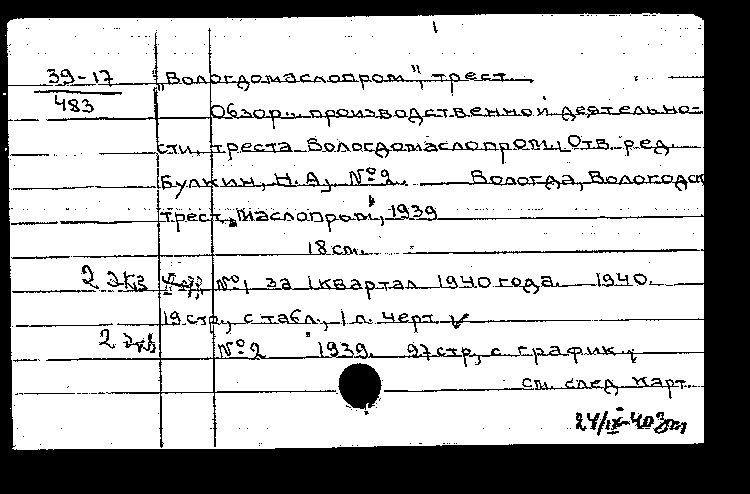 39-17
483
"Вологдомаслопром", трест.
Обзор.. производственной деятельно-
сти, треста Вологдомаслопром, Отв. ред.
Булкин, Н.А, №2. Вологда, Вологодск
трест "Маслопром", 1939
18 см.
2 экз №1 за I квартал 1940 года. 1940.
19 стр., с табл., 1 л. черт. ✓
2 экз №2 1939. 97 стр, с график.
см. след карт.
24/IX-40